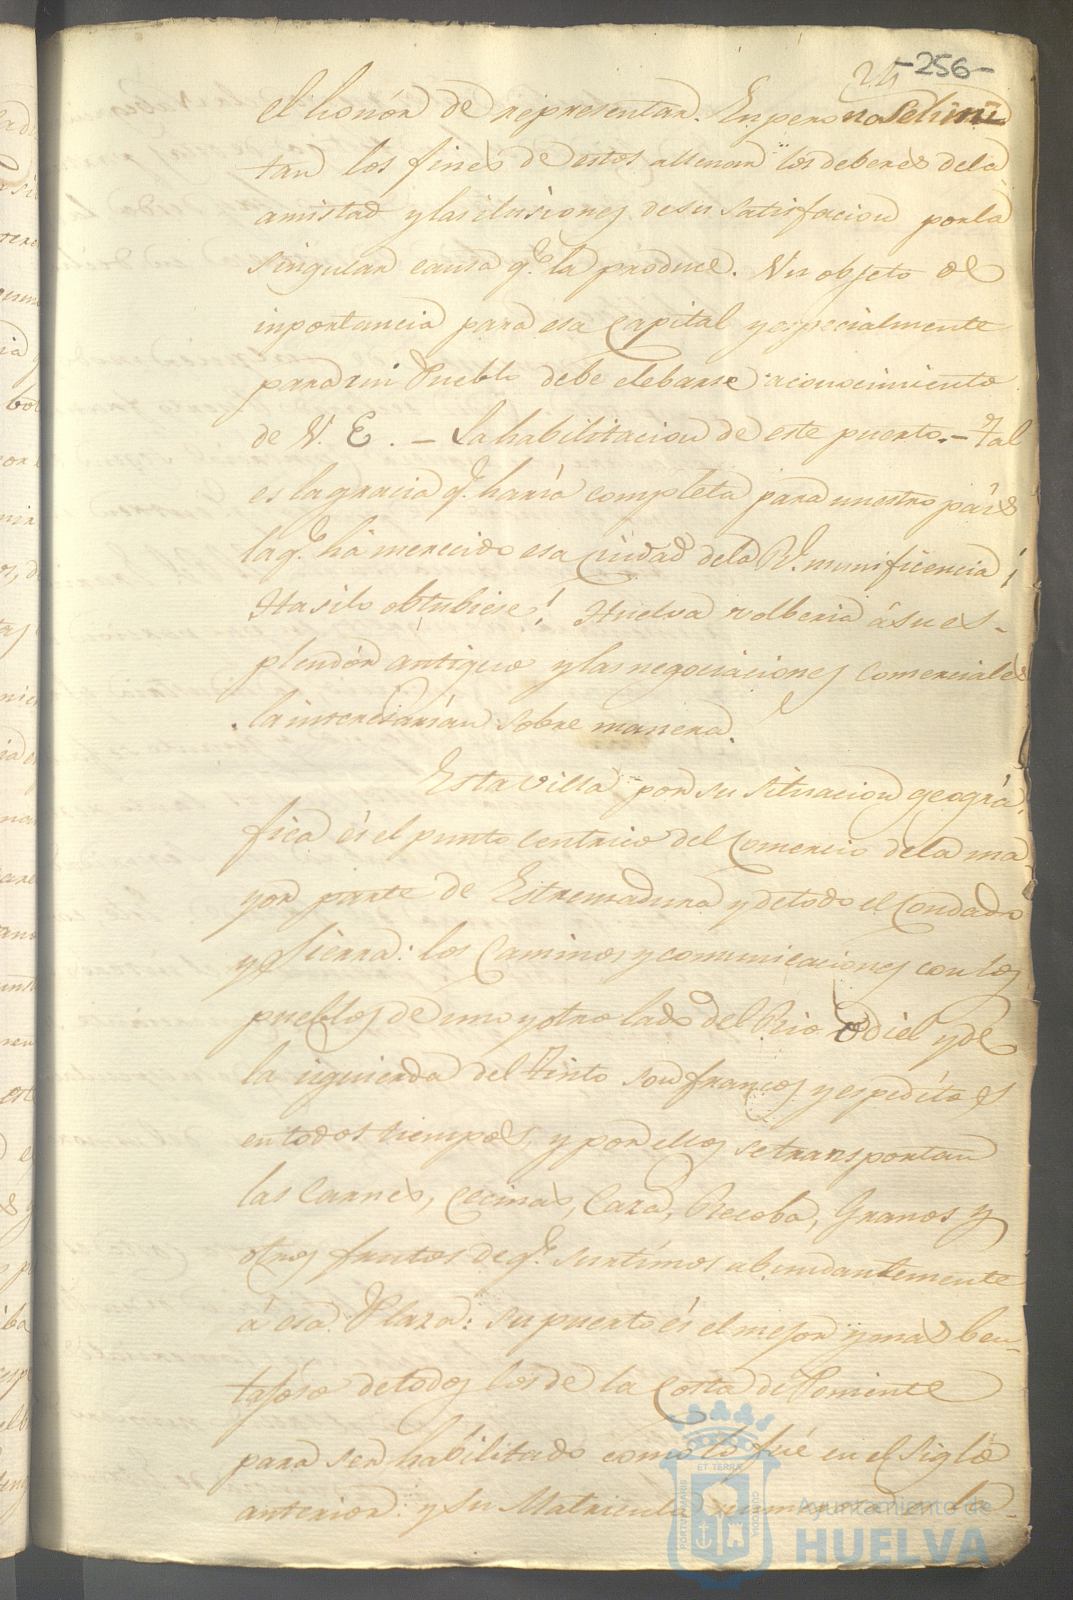 24 -256-
el honór de representar. Enpero no se limi
tan los fines de estos a llenar los deberes dela
amistad y las ilusiones de su satisfacion por la
singular causa q.e la produce. Un objeto de
inportancia para esa Capital y especialmente
para mi Pueblo debe elebarse a conocimiento
de V. E. - La habilitacion de este puerto. - Tal
es la gracia q.e haría completa para nuestro país
la q.e há merecido esa Ciudad dela R.l munificencia ¡
Ha si lo obtubiese! Huelva volberia á su es-
plendór antiguo y las negociaciones comerciales
la interesarían sobre manera.
Esta villa por su situacion geográ
fica és el punto centrico del Comercio dela ma
yor parte de Estremadura y de todo el Condado
y Sierra: los Caminos y comunicaciones con los
pueblos de uno y otro lado del Rio Odiel y de
la izquierda del Tinto son francos y espeditos
en todos tiempos, y por ellos se transportan
las Carnes, Cecinas, Caza, Recoba, Granos y
otros frutos de q.e surtimos abundantemente
á esa Plaza: su puerto és el mejor y mas ben-
tajoso de todos los de la Costa de Poniente
para ser habilitado como lo fué en el Siglo
anterior: y su Matricula
Ayuntamiento de
HUELVA